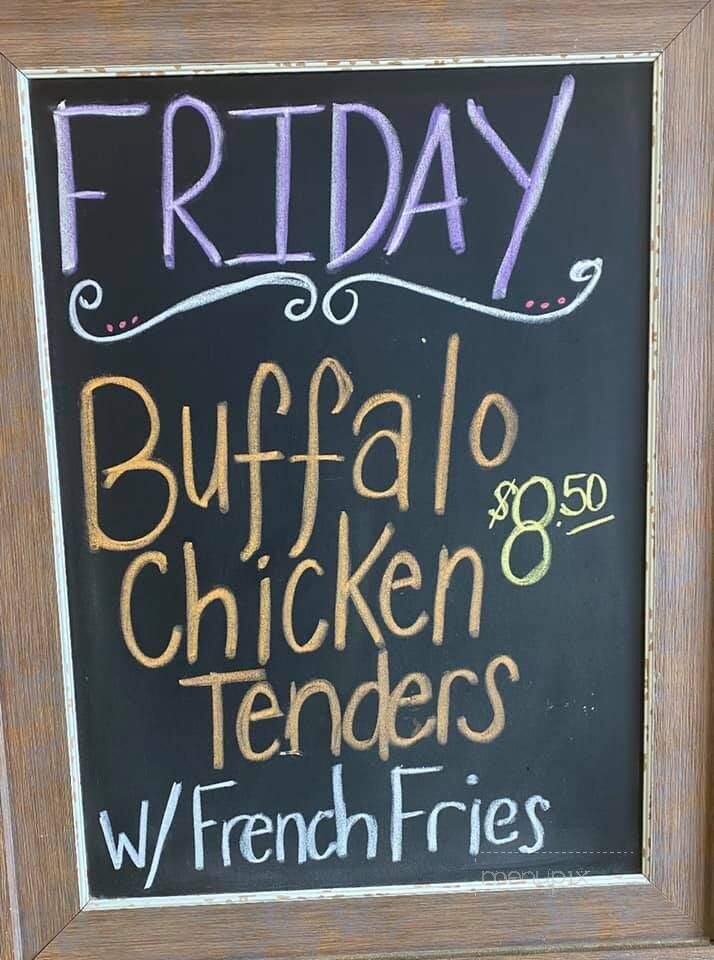 FRIDAY
Buffalo
$8.50
Chicken
Tenders
W/French Fries
menupix